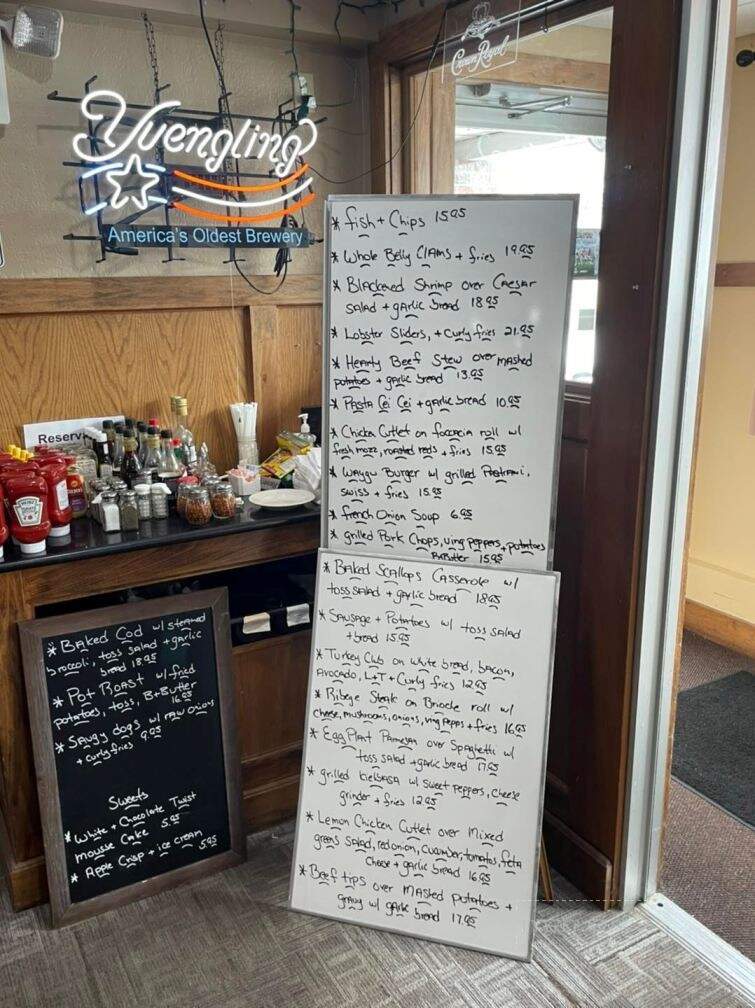 Crown Royal
Yuengling
America's Oldest Brewery
Reserv
HEINZ
* fish + Chips 15.95
* Whole Belly Clams + fries 19.95
* Blackened Shrimp over Caesar
salad + garlic bread 18.95
* Lobster Sliders, + curly fries 21.95
* Hearty Beef Stew over mashed
potatoes + garlic bread 13.95
* Pasta Cei Cei + garlic bread 10.95
* Chicken Cutlet on foccacia roll w/
fresh mozz, roasted reds + fries 15.95
* Waygu Burger w/ grilled Pastrami,
swiss + fries 15.95
* french Onion Soup 6.95
* grilled Pork Chops, ving peppers, + potatoes
15.95
* Baked Scallops Casserole w/
toss salad + garlic bread 18.95
* Sausage + Potatoes w/ toss salad
+ bread 15.95
* Turkey Club on white bread, bacon,
Avocado, L+T + Curly fries 12.95
* Ribeye Steak on Brioche roll w/
cheese, mushrooms, onions, ving Pepps + fries 16.95
* EggPlant Parmesan over Spaghetti w/
toss salad + garlic bread 17.95
* grilled kielbasa w/ sweet peppers, cheese
grinder + fries 12.95
* Lemon Chicken Cutlet over Mixed
greens salad, red onion, cucumber, tomatos, feta
cheese + garlic bread 16.95
* Beef tips over mashed potatoes +
gravy w/ garlic bread 17.95
* Baked Cod w/ steamed
broccoli, toss salad + garlic
bread 18.95
* Pot Roast w/ fried
potatoes, toss, B+Butter
16.95
* Saugy dogs w/ raw onions
+ curly fries 9.95
Sweets
* White + Chocolate Twist
mousse Cake 5.95
* Apple Crisp + ice cream 5.95